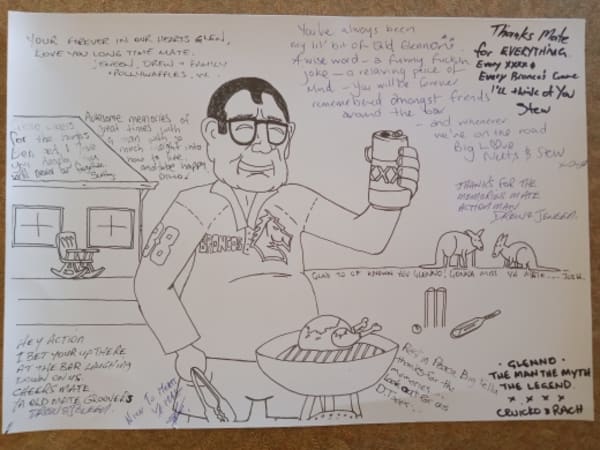 YOUR FOREVER IN OUR HEARTS GLEN,
LOVE YOU LONG TIME MATE.
JENEEN, DREW + FAMILY
+ POLLYWAFFLES. xx
You've always been
my lil' bit of Glennon
A wise word - a funny fuckin
joke - a relaxing piece of
mind - you will be forever
remembered amongst friends
around the bar
- and whenever
we're on the road
Big Love
Nutts & Stew
Thanks Mate
for EVERYTHING
Every xxxx &
Every Bronco's Game
I'll think of You
Stew
Awesome memories of
great times with
a man with so
much insight into
how to live
and be happy
for the
THANKS FOR THE
MEMORIES MATE
ACTION MAN
DREW & JENEEN.
88
BRONCOS
XX
GLAD TO OF KNOWN YOU GLENNO, GONNA MISS YA MATE.... JOSH.
HEY ACTION
I BET YOUR UP THERE
AT THE BAR LAUGHING
DOWN ON US
CHEERS MATE
YA OLD MATE GROOVERS
DREW & JENEEN.
Nice To Meet
Ya
Rest in Peace Big Fella
thanks for the
memories
Look out for us
GLENNO.
THE MAN THE MYTH
THE LEGEND.
x x x x
CRUICKO & RACH